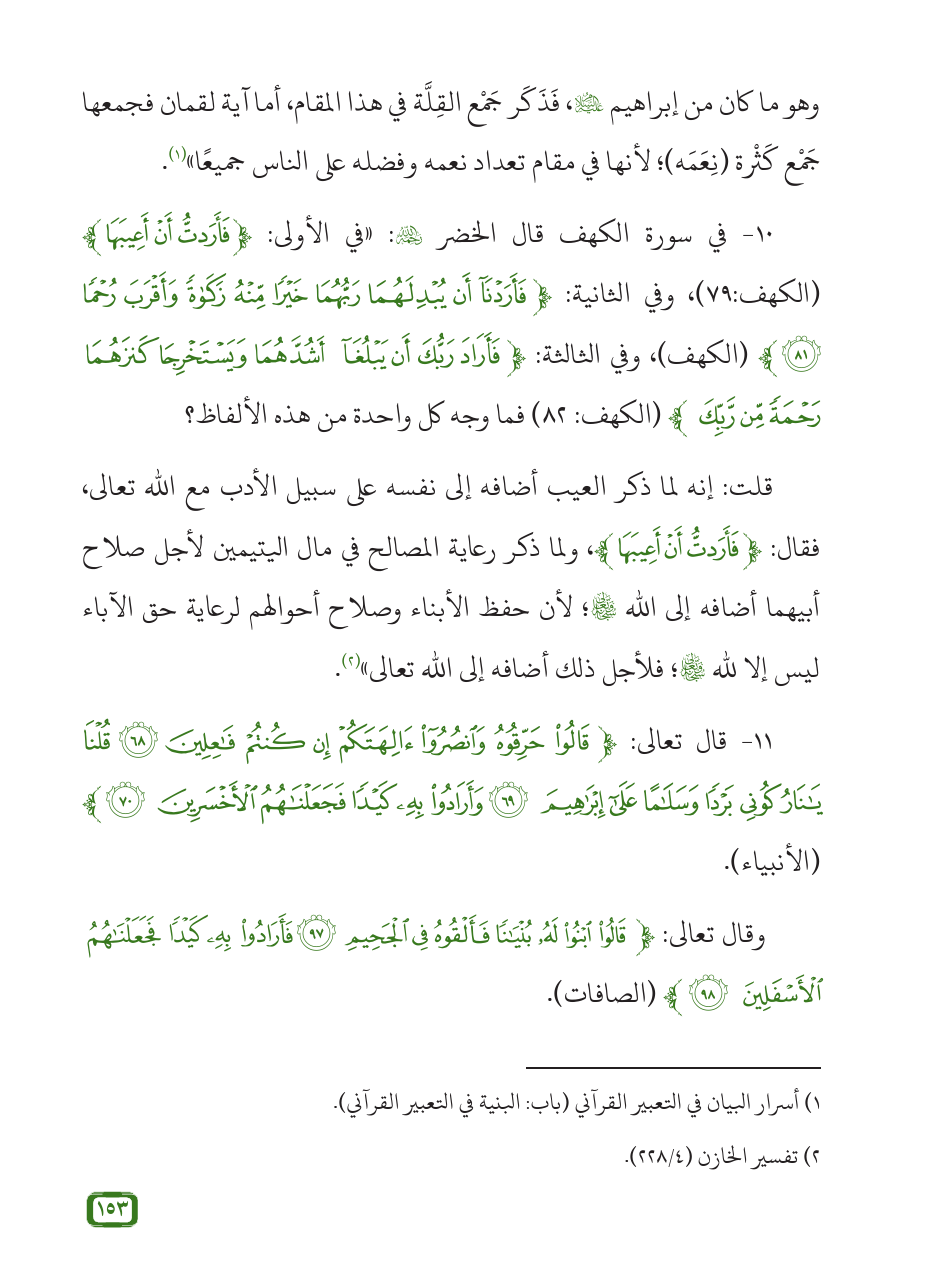 وهو ما كان من إبراهيم ﵇، فَذَكَر جَمْع القِلَّة في هذا المقام، أما آية لقمان فجمعها
جَمْع كَثْرة (نِعَمَه)؛ لأنها في مقام تعداد نعمه وفضله على الناس جميعًا»(١).
١٠- في سورة الكهف قال الخضر ﵇: «في الأولى: ﴿فَأَرَدتُّ أَنْ أَعِيبَهَا﴾
(الكهف:٧٩)، وفي الثانية: ﴿فَأَرَدْنَآ أَن يُبْدِلَهُمَا رَبُّهُمَا خَيْرًا مِّنْهُ زَكَوٰةً وَأَقْرَبَ رُحْمًا
٨١﴾ (الكهف)، وفي الثالثة: ﴿فَأَرَادَ رَبُّكَ أَن يَبْلُغَآ أَشُدَّهُمَا وَيَسْتَخْرِجَا كَنزَهُمَا
رَحْمَةً مِّن رَّبِّكَ﴾ (الكهف: ٨٢) فما وجه كل واحدة من هذه الألفاظ؟
قلت: إنه لما ذكر العيب أضافه إلى نفسه على سبيل الأدب مع الله تعالى،
فقال: ﴿فَأَرَدتُّ أَنْ أَعِيبَهَا﴾، ولما ذكر رعاية المصالح في مال اليتيمين لأجل صلاح
أبيهما أضافه إلى الله ؛ لأن حفظ الأبناء وصلاح أحوالهم لرعاية حق الآباء
ليس إلا لله ؛ فلأجل ذلك أضافه إلى الله تعالى»(٢).
١١- قال تعالى: ﴿قَالُوا۟ حَرِّقُوهُ وَٱنصُرُوٓا۟ ءَالِهَتَكُمْ إِن كُنتُمْ فَـٰعِلِينَ ٦٨ قُلْنَا
يَـٰنَارُ كُونِى بَرْدًا وَسَلَـٰمًا عَلَىٰٓ إِبْرَٰهِيمَ ٦٩ وَأَرَادُوا۟ بِهِۦ كَيْدًا فَجَعَلْنَـٰهُمُ ٱلْأَخْسَرِينَ ٧٠﴾
(الأنبياء).
وقال تعالى: ﴿قَالُوا۟ ٱبْنُوا۟ لَهُۥ بُنْيَـٰنًا فَأَلْقُوهُ فِى ٱلْجَحِيمِ ٩٧ فَأَرَادُوا۟ بِهِۦ كَيْدًا فَجَعَلْنَـٰهُمُ
ٱلْأَسْفَلِينَ ٩٨﴾ (الصافات).
١) أسرار البيان في التعبير القرآني (باب: البنية في التعبير القرآني).
٢) تفسير الخازن (٤/٢٢٨).
١٥٣